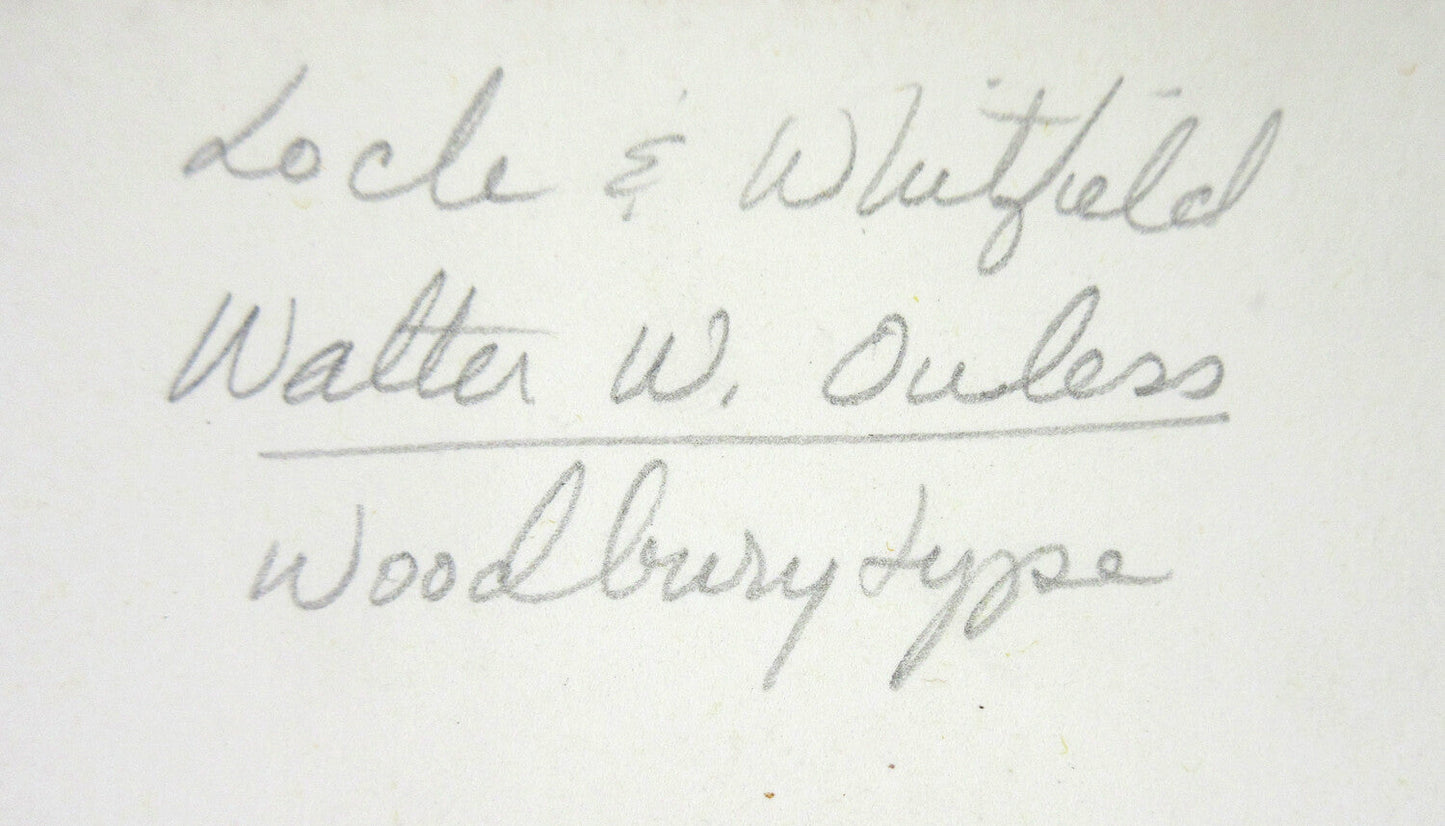 Locke & Whitfield
Walter W. Ouless
Woodburytype